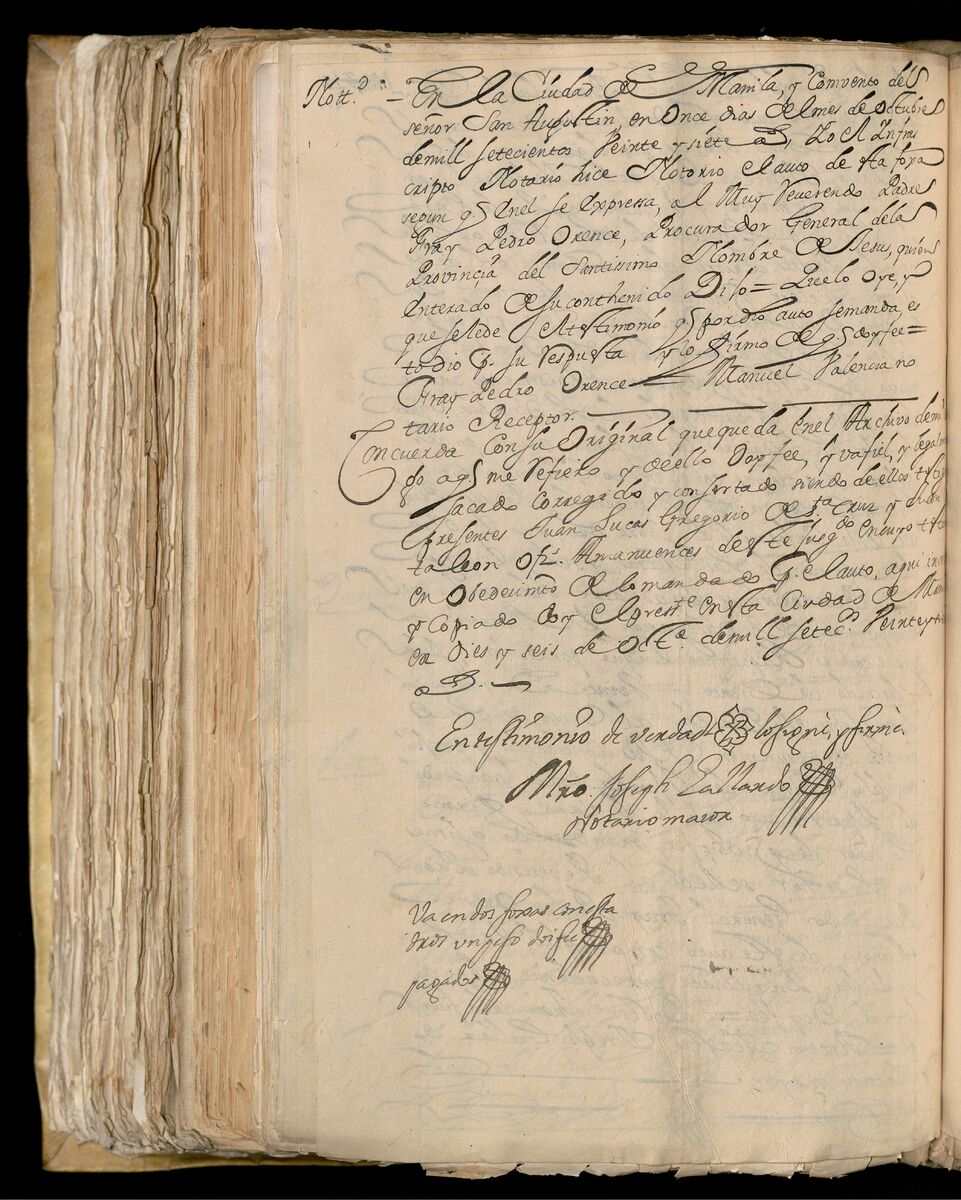 Nott.ᵒⁿ – En la Ciudad de Manila, y Comvento del
señor San Augustin, en Once dias del mes de Octubre
de mill setecientos Veinte y siete a.s, Yo el Infras
cripto Notario hice Notorio el auto de esta foxa
segun q.e enel se expressa, al Muy Reverendo Padre
Fray Pedro Orence, Procurador General dela
Provincia del Santissimo Nombre de Jesus, quien
enterado de su conthenido Dijo = Que lo oye, y
que se le de el testimonio q.e por dho auto se manda, es
to dio p.r su respuesta y lo firmo de q.e doy fee =
Fray Pedro Orence = Manuel Valencia no
tario Receptor.
Concuerda Con su Original que queda enel Archivo de mi
go a q.e me refiero y de ello doy fee, y va fiel, y legalm
sacado Corregido y consertado siendo de ellos testig
presentes Juan Lucas Gregorio de S.ta Cruz y
taleon Ofi. Amanuences de este Jusg.do en cuyo test
en Obedecim.to de lo mandado p.r el auto, aqui in
y Copiado doy el pres.te en esta Ciudad de Mani
en dies y seis de Oct.e de mill setec.s Veinte y
a.s. —
En testimonio de verdad lo signè, y firmè.
Mro. Joseph Gallardo
Notario maior
Va en dos foxas con esta
dros un peso doi fee
pagados